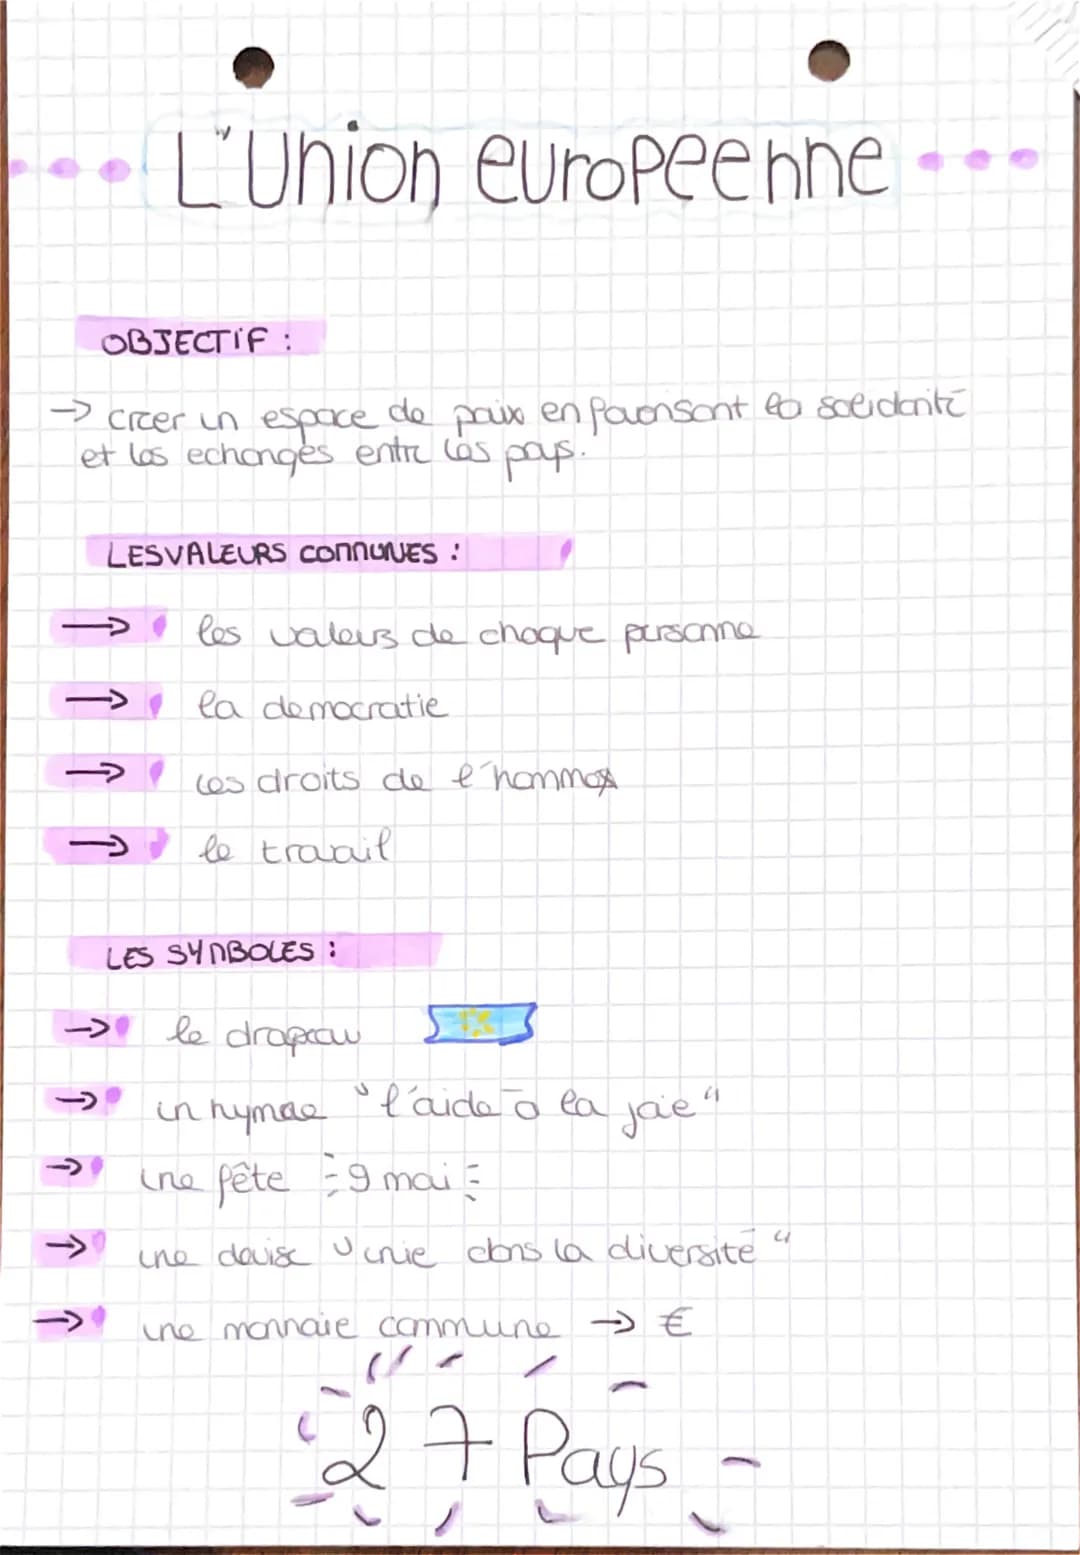 L'Union europeenne
OBJECTIF :
→ créer un espace de paix en favorisant la solidarité
et les echanges entre les pays.
LES VALEURS COMMUNES :
→ les valeurs de chaque personne
→ la democratie
→ les droits de l'homme
→ le travail
LES SYMBOLES :
→ le drapeau
→ un hymne "l'aide à la joie"
→ une fête 9 mai
→ une devise "unie dans la diversité"
→ une monnaie commune → €
27 Pays